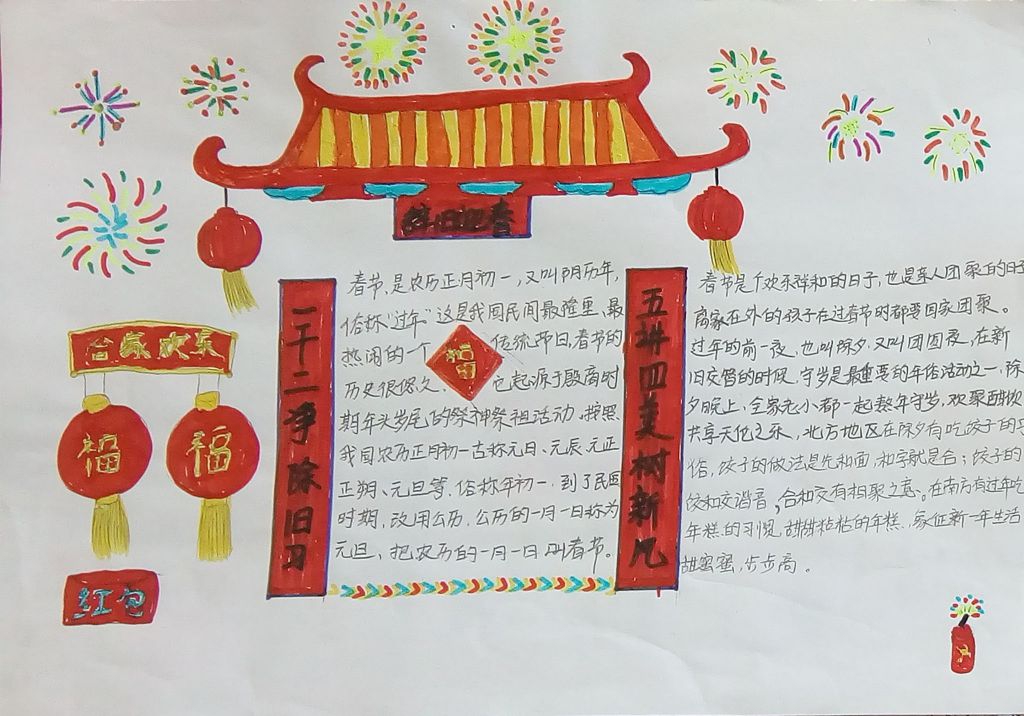 辞旧迎春
合家欢乐
福
福
红包
一干二净除旧习
五讲四美树新风
福
春节,是农历正月初一,又叫阴历年,
俗称“过年”这是我国民间最隆重、最
热闹的一个传统节日,春节的
历史很悠久、它起源于殷商时
期年头岁尾的祭神祭祖活动。按照
我国农历正月初一古称元日、元辰、元正
正朔、元旦等、俗称年初一、到了民国
时期,改用公历,公历的一月一日称为
元旦,把农历的一月一日叫春节。
春节是个欢乐祥和的日子,也是亲人团聚的日子
离家在外的孩子在过春节时都要回家团聚。
过年的前一夜,也叫除夕,又叫团圆夜,在新
旧交替的时候,守岁是最重要的年俗活动之一,除
夕晚上,全家老小都一起熬年守岁,欢聚酣饮
共享天伦之乐,北方地区在除夕有吃饺子的习
俗,饺子的做法是先和面,和字就是合;饺子的
饺和交谐音,合和交有相聚之意。在南方有过年吃
年糕的习惯,甜甜粘粘的年糕、象征新一年生活
甜蜜蜜,步步高。